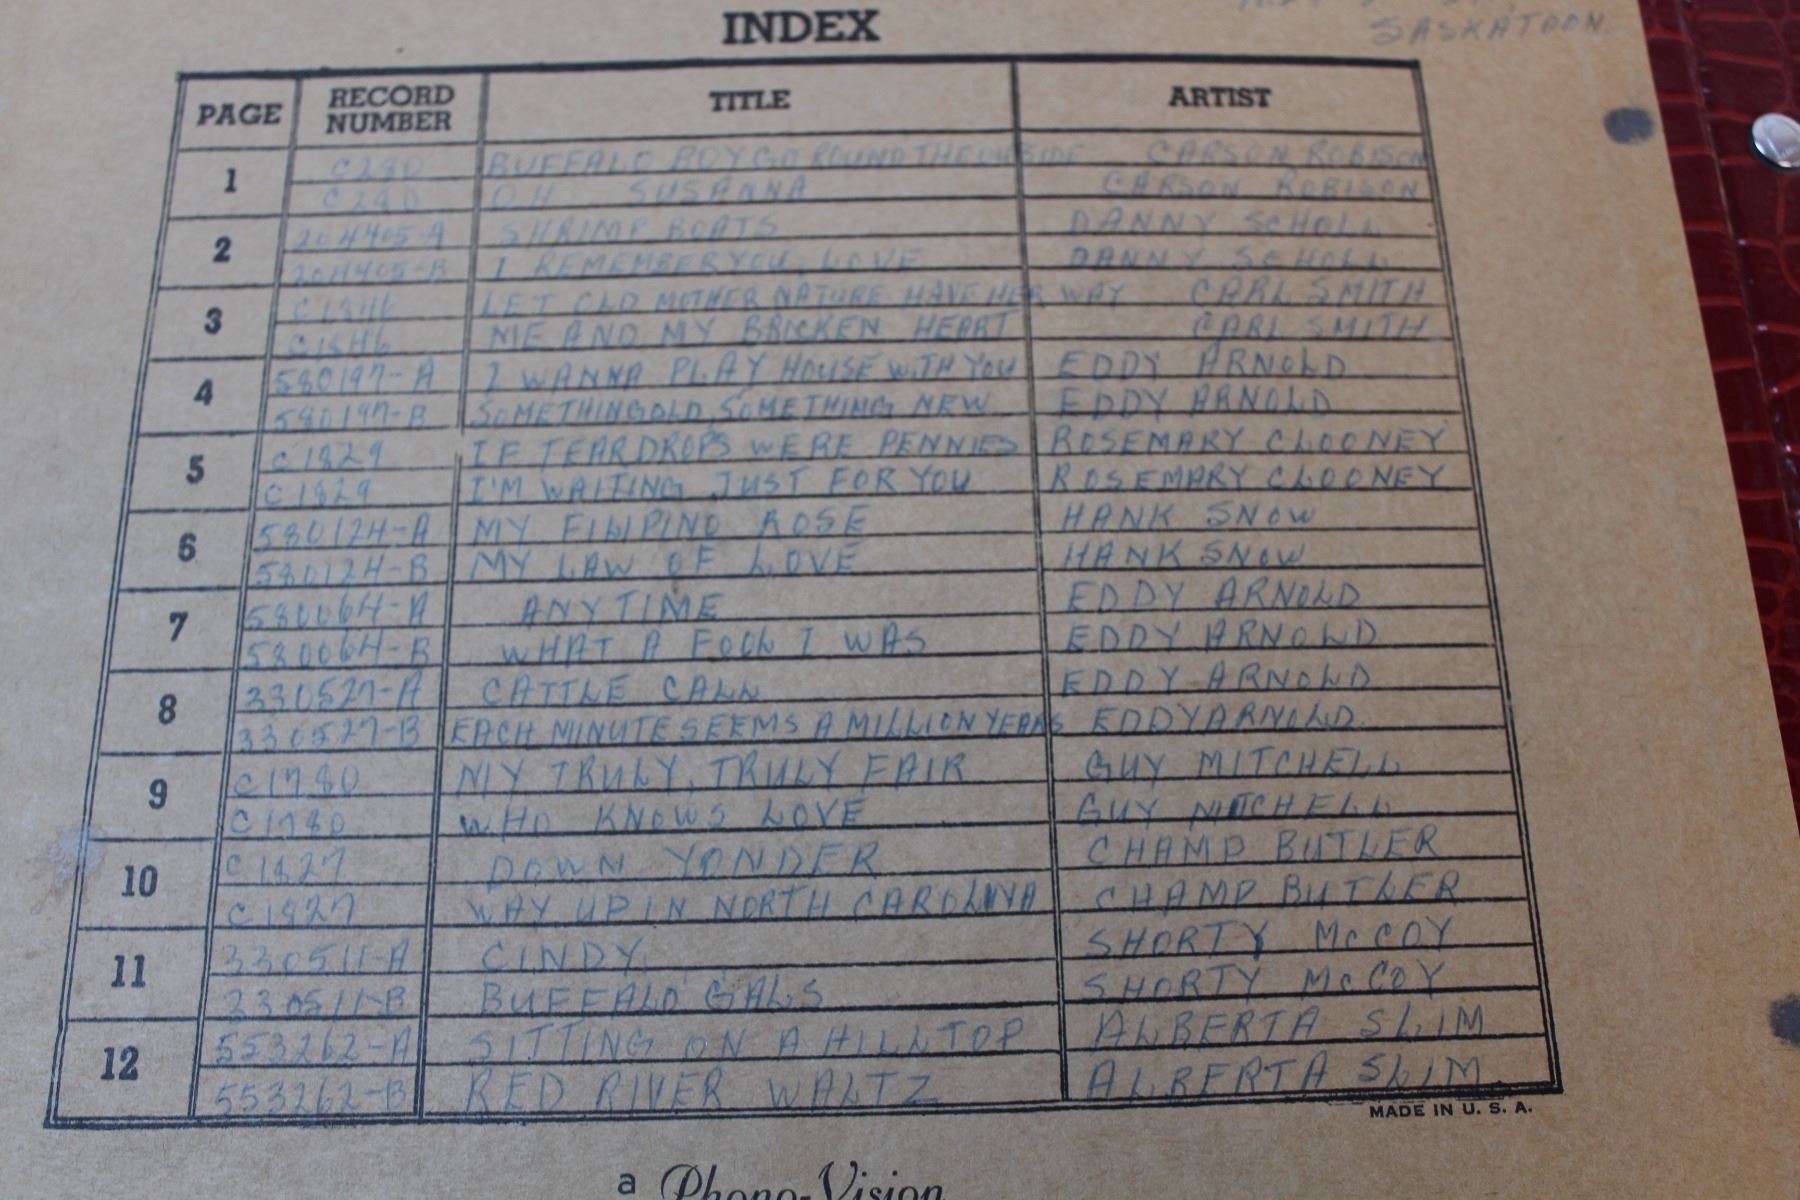 SASKATOON
INDEX
PAGE RECORD NUMBER TITLE ARTIST
1 C280 BUFFALO BOY GO ROUND THE OUTSIDE CARSON ROBISON
C280 OH SUSANNA CARSON ROBISON
2 204405-A SHRIMP BOATS DANNY SCHOLL
204405-B I REMEMBER YOU, LOVE DANNY SCHOLL
3 C1846 LET OLD MOTHER NATURE HAVE HER WAY CARL SMITH
C1846 ME AND MY BROKEN HEART CARL SMITH
4 580197-A I WANNA PLAY HOUSE WITH YOU EDDY ARNOLD
580197-B SOMETHING OLD, SOMETHING NEW EDDY ARNOLD
5 C1829 IF TEARDROPS WERE PENNIES ROSEMARY CLOONEY
C1829 I'M WAITING JUST FOR YOU ROSEMARY CLOONEY
6 580124-A MY FILIPINO ROSE HANK SNOW
580124-B MY LAW OF LOVE HANK SNOW
7 580064-A ANYTIME EDDY ARNOLD
580064-B WHAT A FOOL I WAS EDDY ARNOLD
8 330527-A CATTLE CALL EDDY ARNOLD
330527-B EACH MINUTE SEEMS A MILLION YEARS EDDY ARNOLD
9 C1780 MY TRULY, TRULY FAIR GUY MITCHELL
C1780 WHO KNOWS LOVE GUY MITCHELL
10 C1827 DOWN YONDER CHAMP BUTLER
C1827 WAY UP IN NORTH CAROLINA CHAMP BUTLER
11 330511-A CINDY SHORTY McCOY
330511-B BUFFALO GALS SHORTY McCOY
12 553262-A SITTING ON A HILLTOP ALBERTA SLIM
553262-B RED RIVER WALTZ ALBERTA SLIM
MADE IN U. S. A.
a Phono-Vision